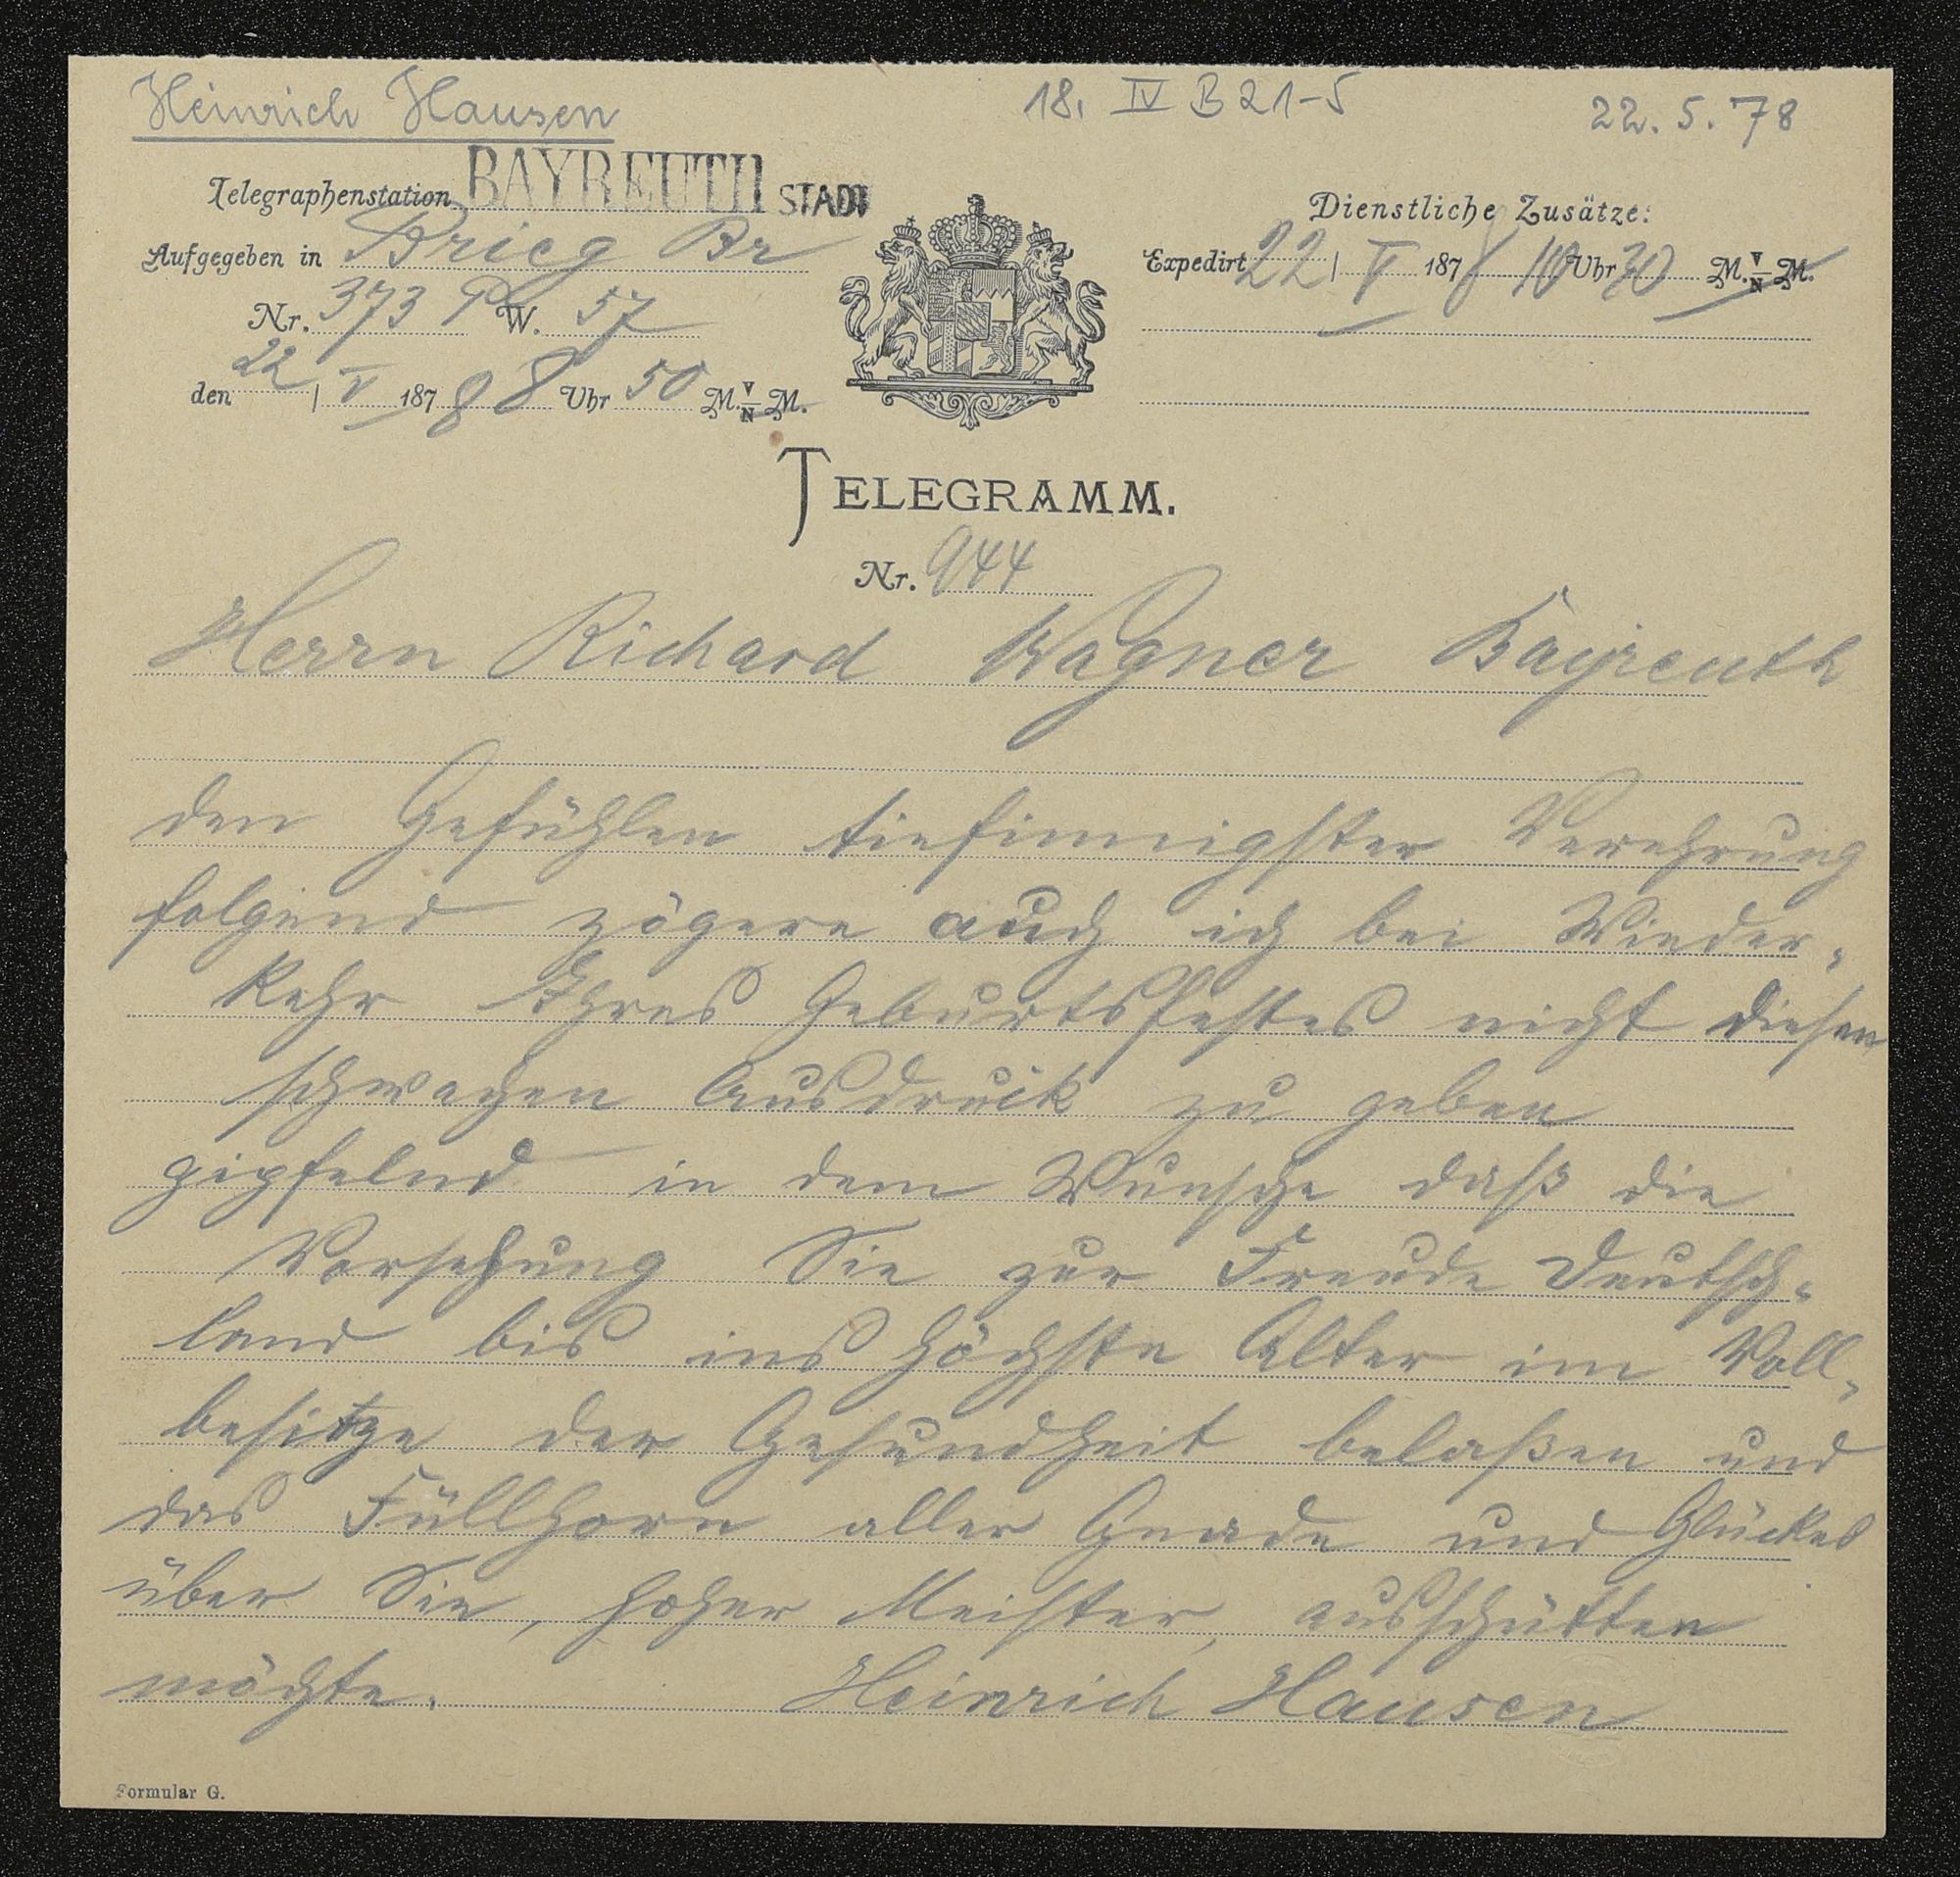 Heinrich Hausen
18. IV B 21-5
22. 5. 78
Telegraphenstation BAYREUTH STADT
Aufgegeben in Brieg Br
Nr. 373 P W. 57
den 22 / V 1878 8 Uhr 50 M. V/N M.
Dienstliche Zusätze:
Expedirt 22 / V 1878 10 Uhr 30 M. V/N M.
TELEGRAMM.
Nr. 944
Herrn Richard Wagner Bayreuth
den Gefühlen tiefinnigster Verehrung
folgend zögere auch ich bei Wieder-
kehr Ihres Geburtsfestes nicht diesen
schwachen Ausdruck zu geben
gipfelnd in dem Wunsche daß die
Vorsehung Sie zur Freude Deutsch-
land bis ins höchste Alter im Voll-
besitze der Gesundheit belaßen und
das Füllhorn aller Gnade und Glückes
über Sie, hoher Meister, ausschütten
möchte. Heinrich Hausen
Formular G.